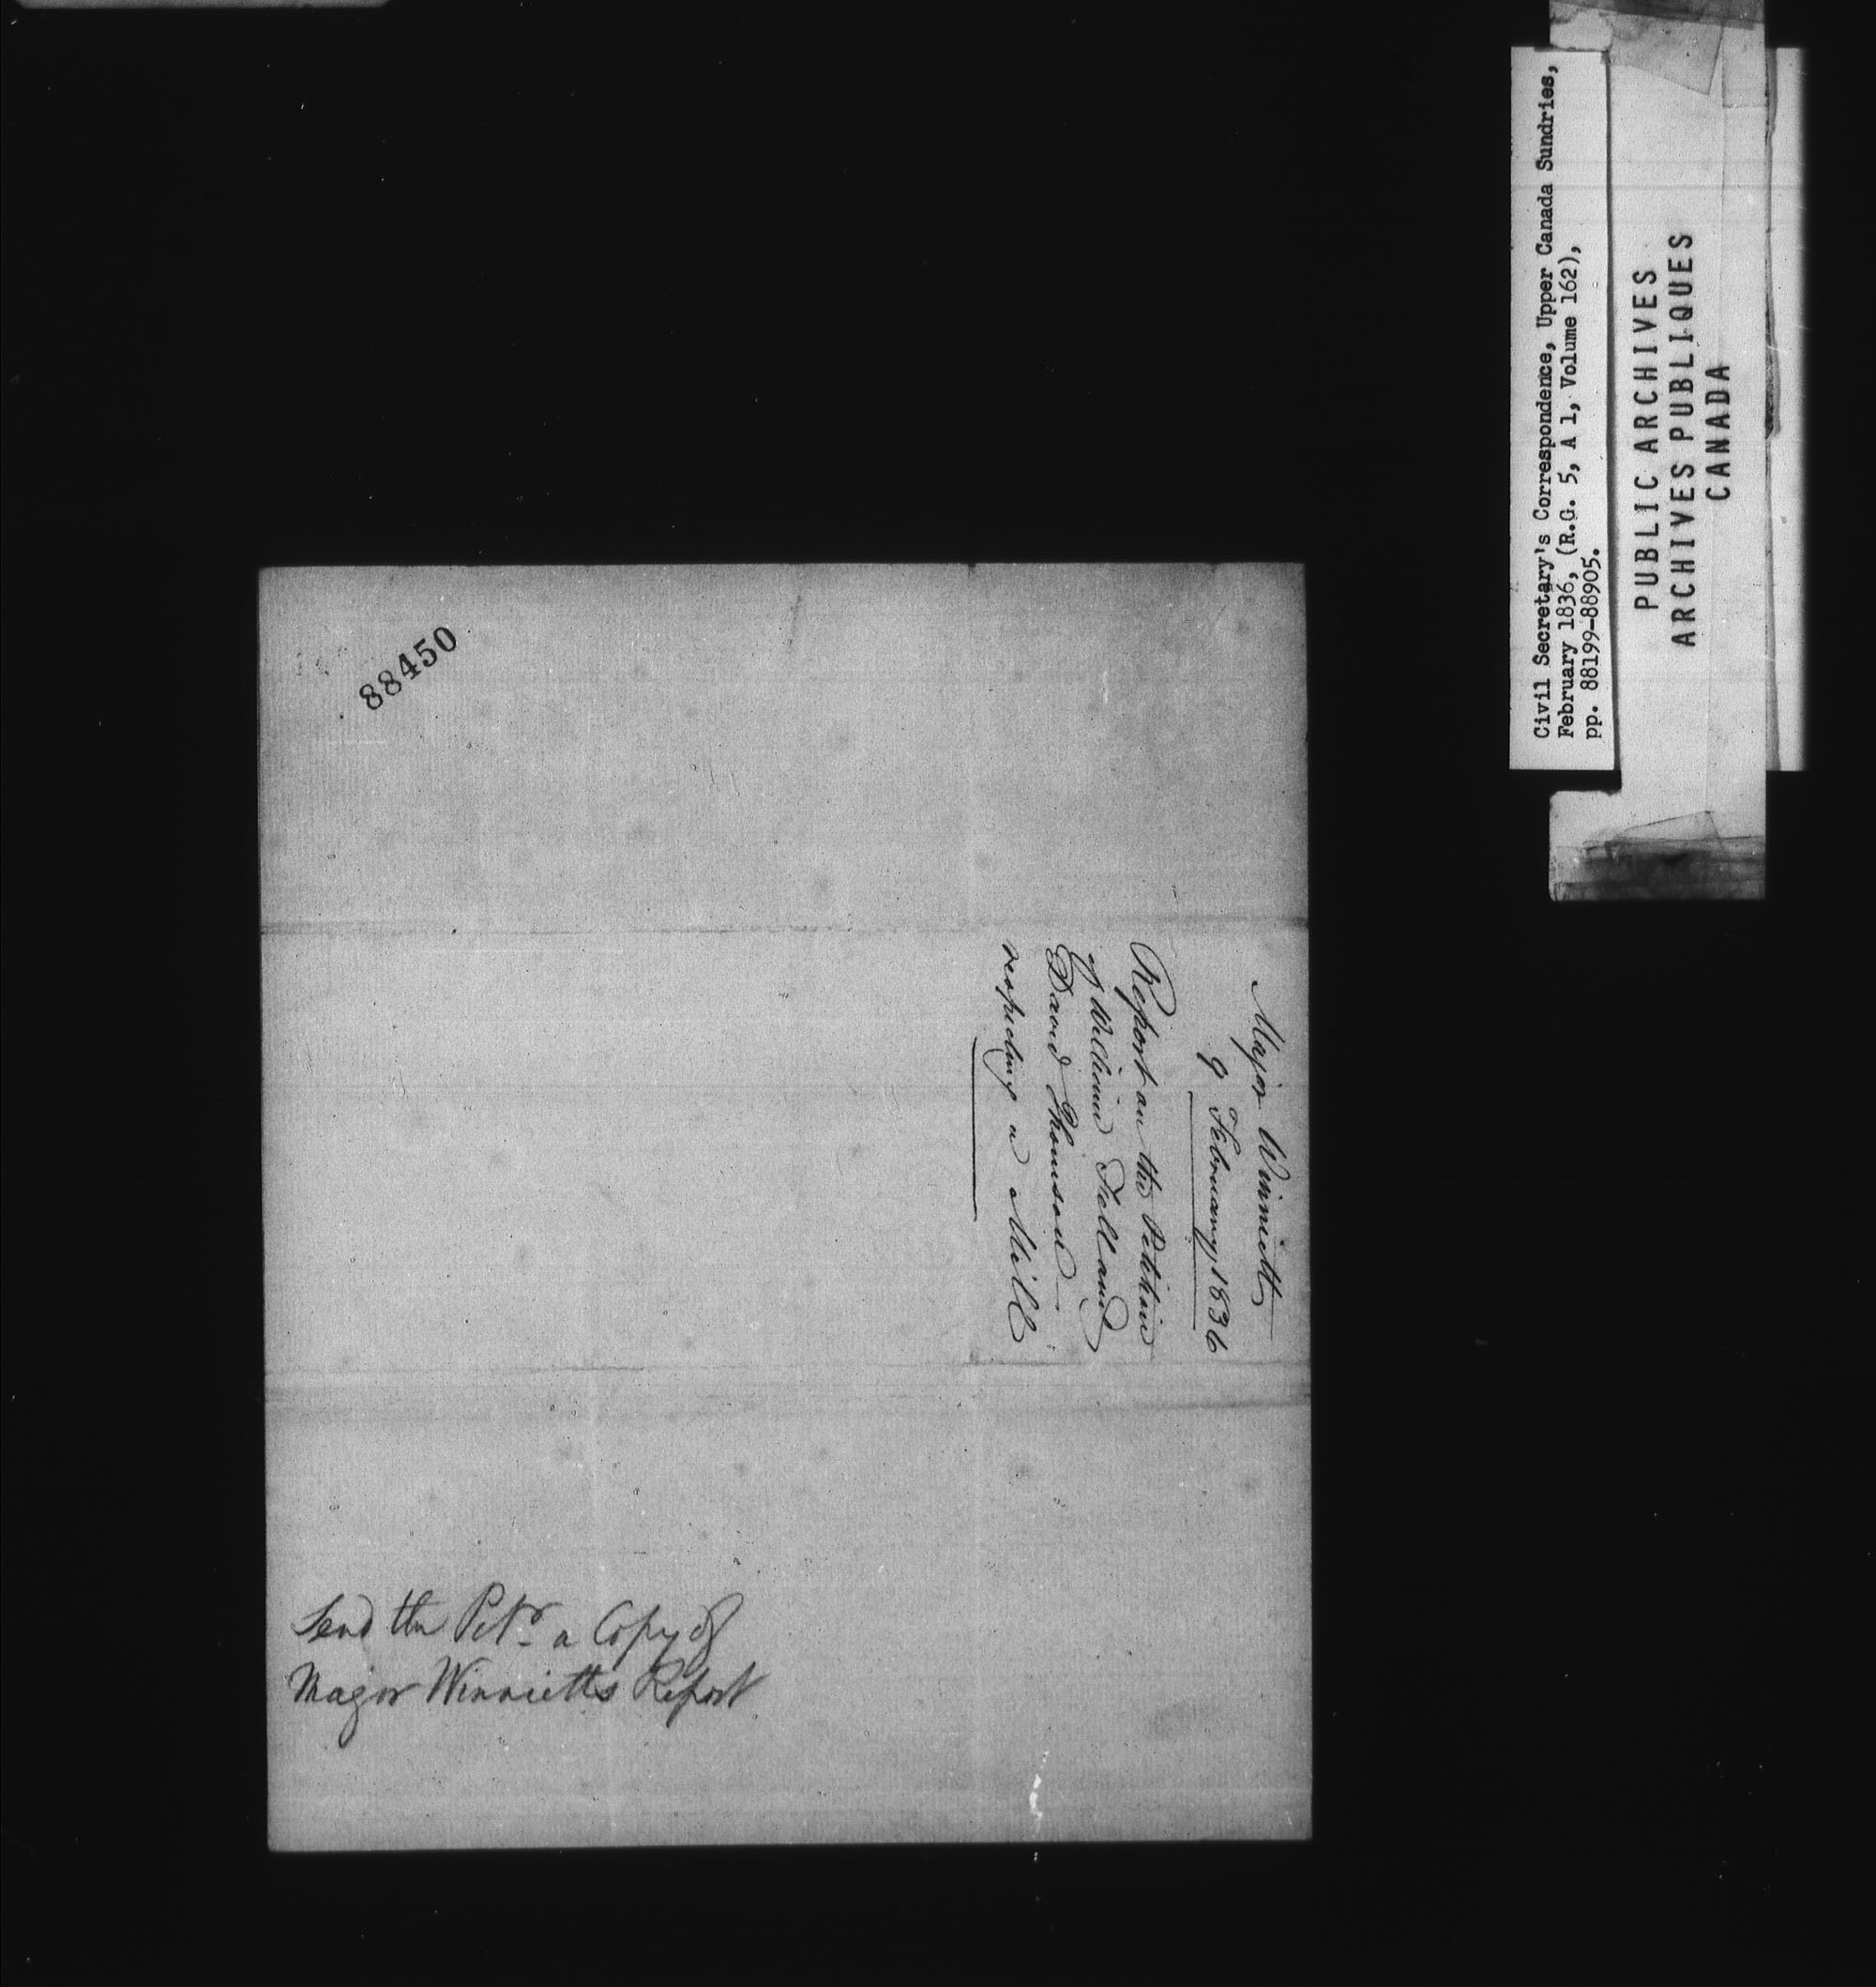 88450
Major Winniett
9 February, 1836
Report on the Petition
of William Fell and
David Thomson
respecting a Mill
Send the Petr. a Copy of
Major Winnietts Report
Civil Secretary's Correspondence, Upper Canada Sundries,
February 1836, (R.G. 5, A 1, Volume 162),
pp. 88199-88905.
PUBLIC ARCHIVES
ARCHIVES PUBLIQUES
CANADA